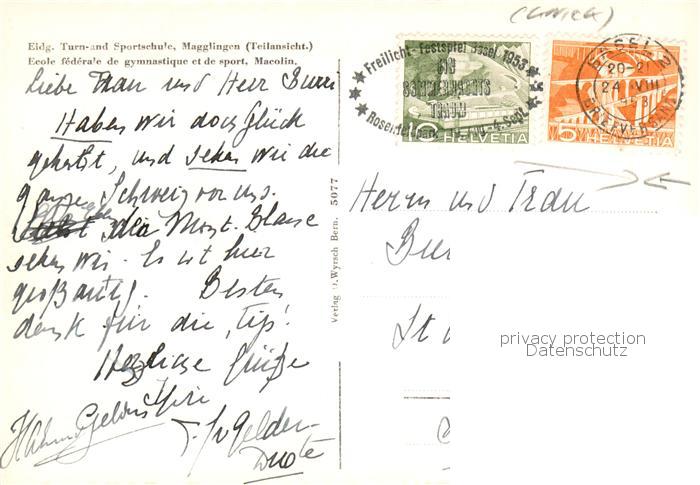 Eidg. Turn- und Sportschule, Magglingen (Teilansicht.)
Ecole fédérale de gymnastique et de sport, Macolin.
Liebe Frau und Herr Burri
Haben wir doch Glück
gehabt, und sehen wir die
ganze Schweiz vor uns.
die Mont. Blanc
sehen wir. Es ist hier
großartig! Besten
dank für die „Tip!
Herzliche Grüße
Ihre
v Gelder
Verlag O. Wyrsch Bern. 5077
Freilicht-Festspiel Basel 1953
EIN
SOMMERNACHTS
TRAUM
Rosenfeldpark
Sept.
10 HELVETIA
BASEL 2
20-21
24 VIII
BRIEFVERSAND
5 HELVETIA
Herrn und Frau
Bur
St
privacy protection
Datenschutz